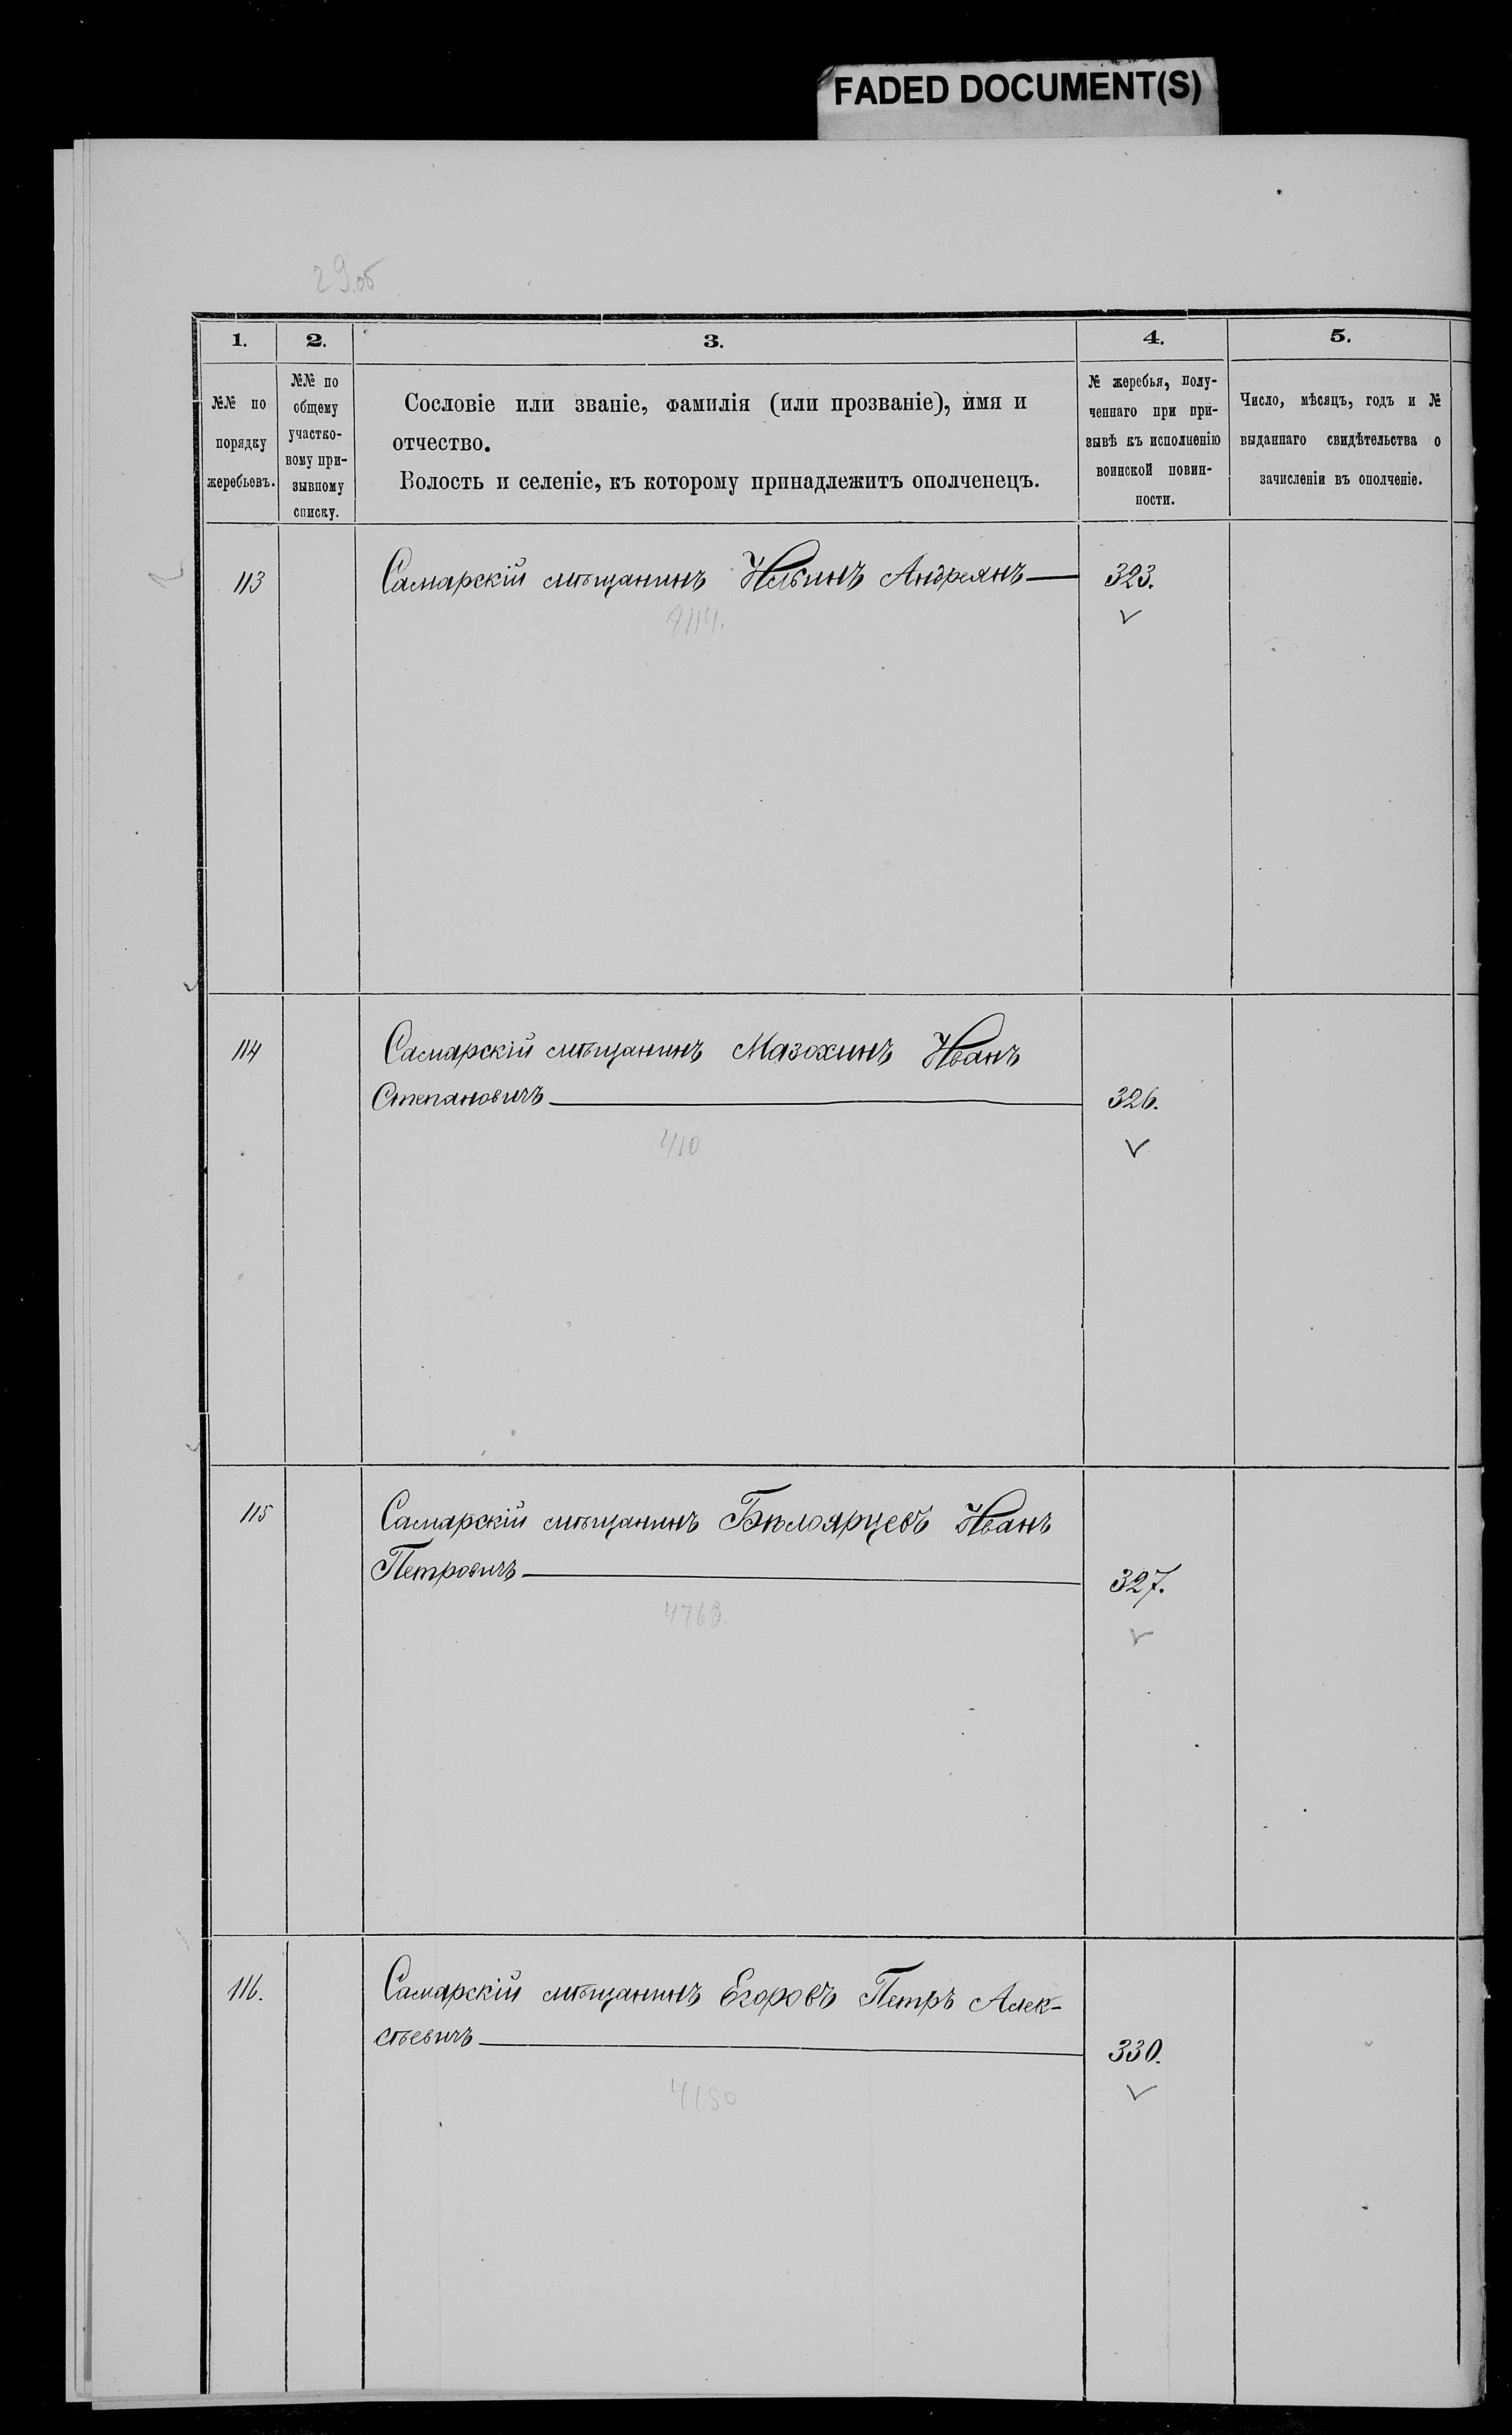 FADED DOCUMENT(S)
29об
1.
2.
3.
4.
5.
№№ по
порядку
жеребьевъ.
№№ по
общему
участко-
вому при-
зывному
списку.
Сословіе или званіе, фамилія (или прозваніе), имя и
отчество.
Волость и селеніе, къ которому принадлежитъ ополченецъ.
№ жеребья, полу-
ченнаго при при-
зывѣ къ исполненію
воинской повин-
ности.
Число, мѣсяцъ, годъ и №
выданнаго свидѣтельства о
зачисленіи въ ополченіе.
113
Самарскій мѣщанинъ Ильинъ Андреянъ—
323.
114
Самарскій мѣщанинъ Мазохинъ Иванъ
Степановичъ—
326.
410
115
Самарскій мѣщанинъ Бѣлоярцевъ Иванъ
Петровичъ—
327.
4768.
116.
Самарскій мѣщанинъ Егоровъ Петръ Алек-
сѣевичъ—
330.
4150